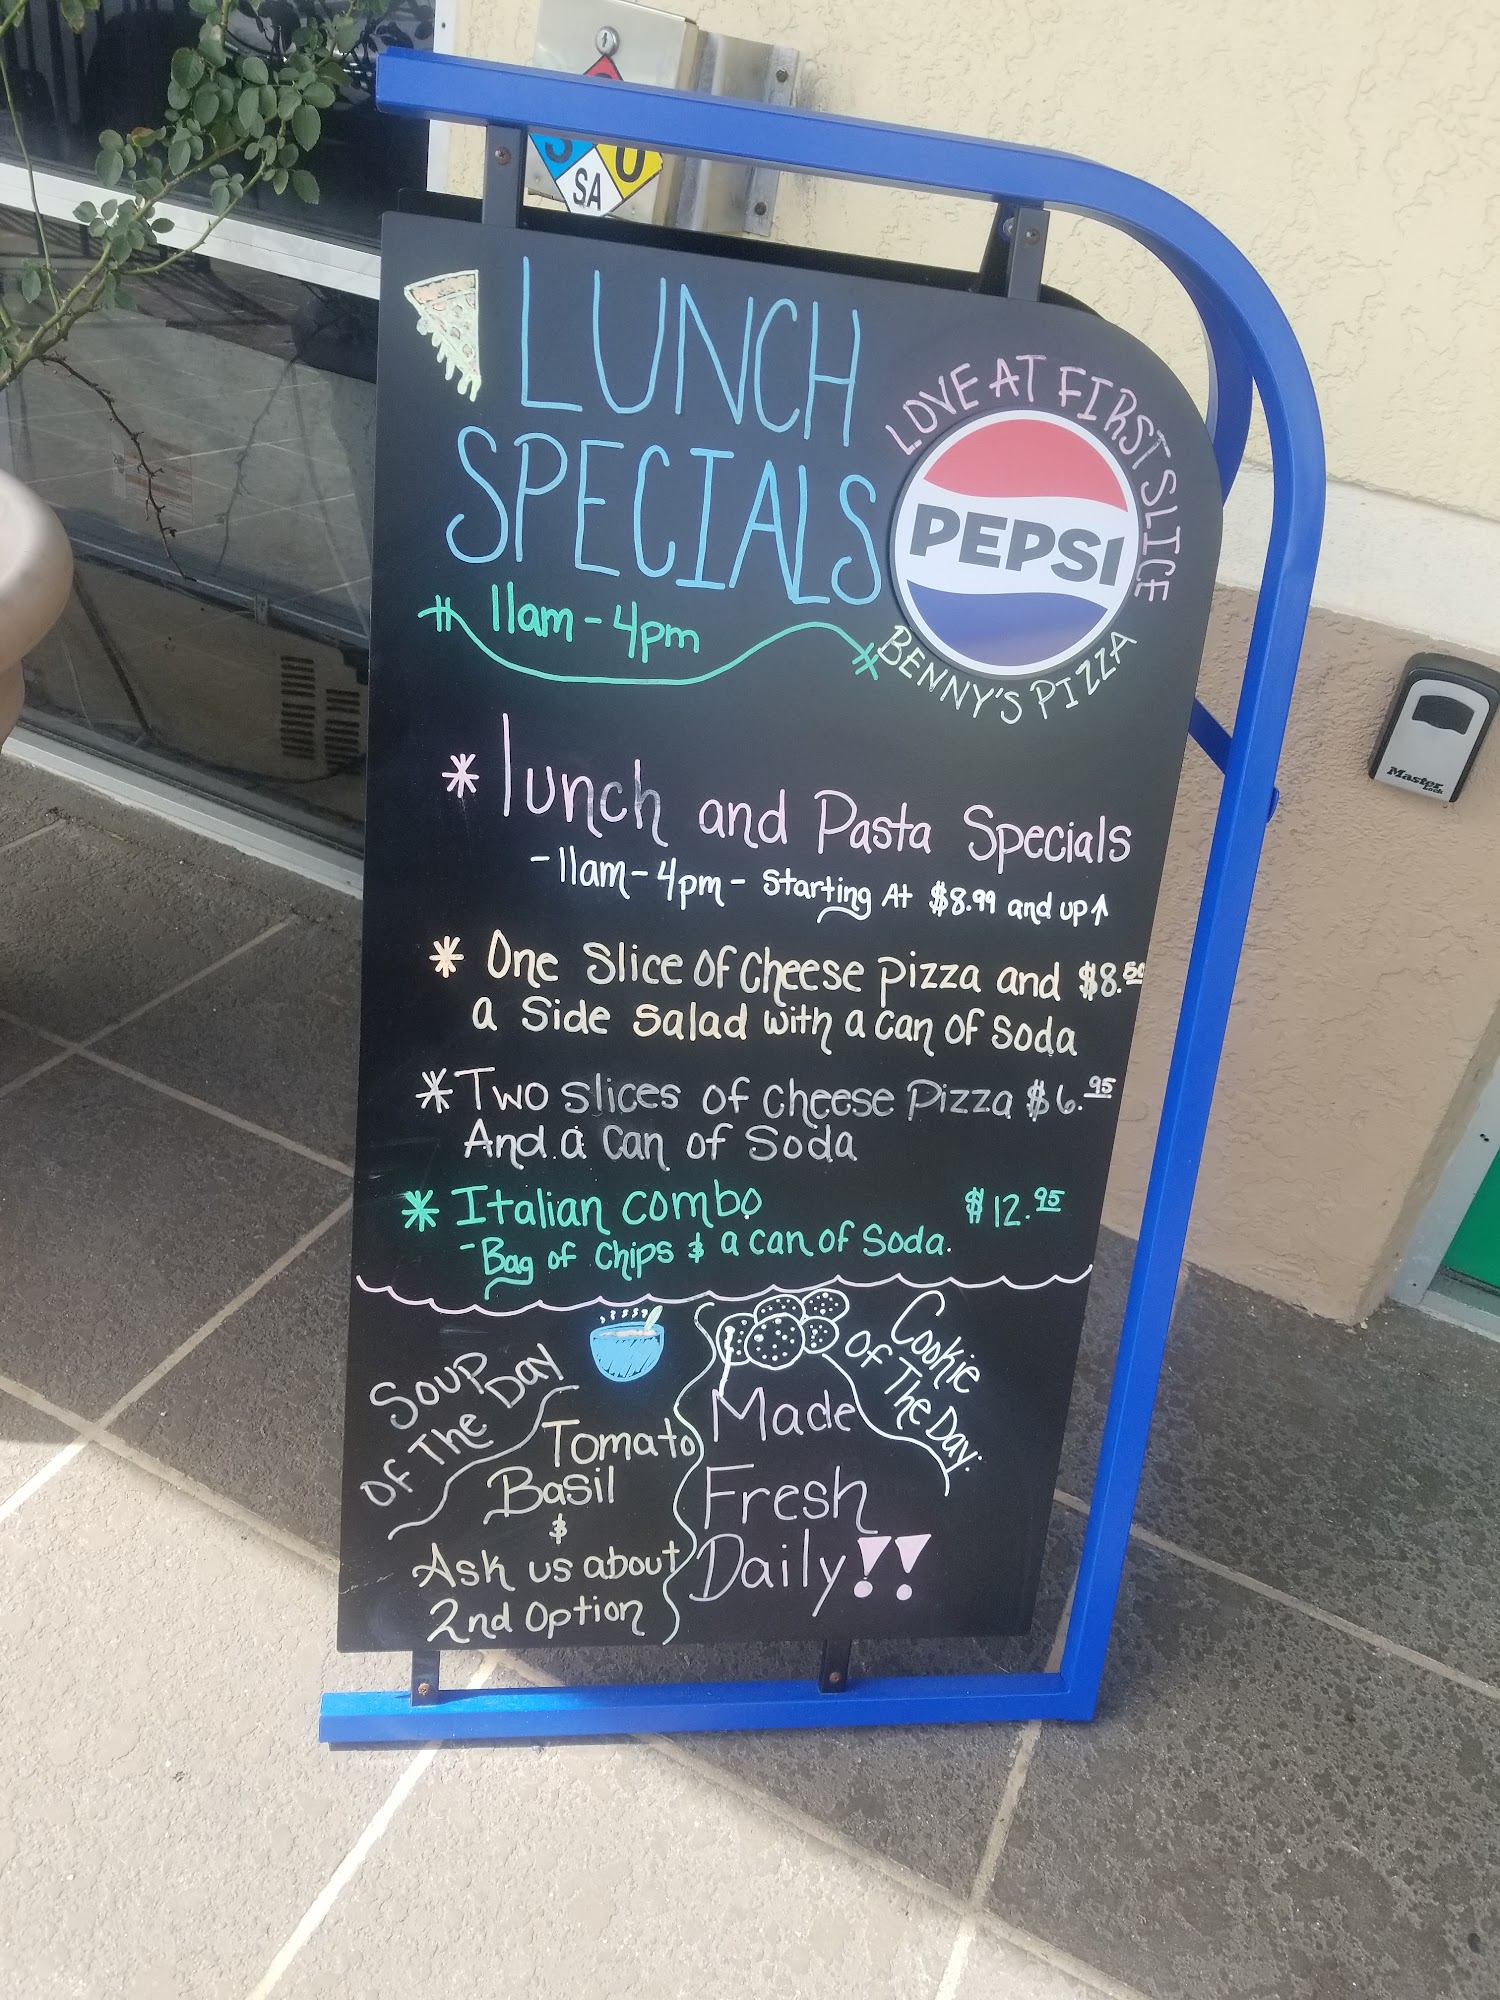 SA
LUNCH
SPECIALS
11am - 4pm
LOVE AT FIRST SLICE
PEPSI
BENNY'S PIZZA
* lunch and Pasta Specials
- 11am - 4pm - Starting At $8.99 and up ↑
* One Slice of Cheese pizza and $8.50
a Side Salad with a can of soda
* Two slices of cheese Pizza $6.95
And a Can of Soda
* Italian combo $12.95
- Bag of Chips & a can of Soda.
Soup
Of The Day
Tomato
Basil
&
Ask us about
2nd Option
Cookie
Of The Day:
Made
Fresh
Daily!!
Master
Lock